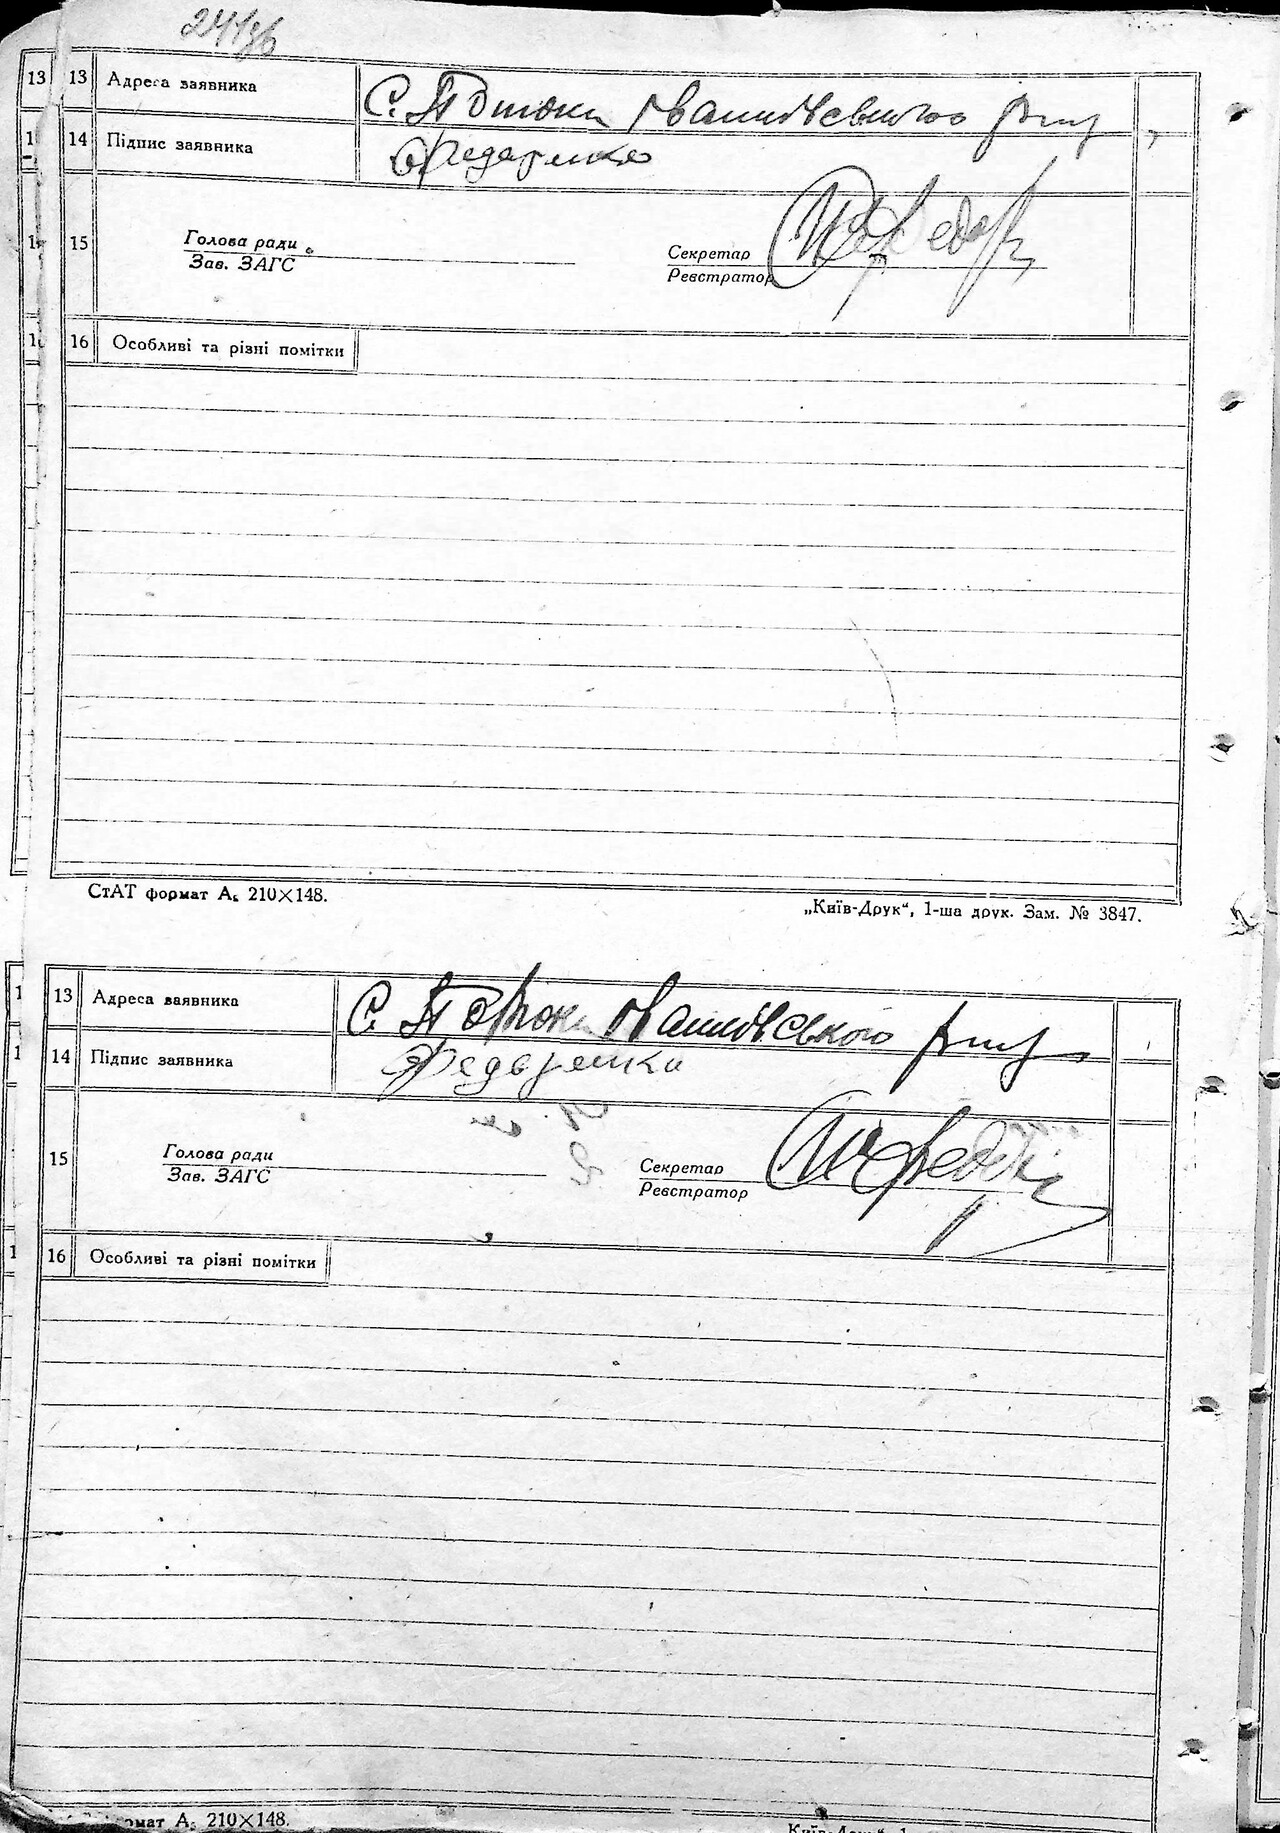 13 13 Адреса заявника С. Потоки
14 Підпис заявника Федоренко
15 Голова ради
Зав. ЗАГС
Секретар
Реєстратор
16 Особливі та різні помітки
СтАТ формат А₅ 210×148.
„Київ-Друк“, 1-ша друк. Зам. № 3847.
13 Адреса заявника С. Потоки
14 Підпис заявника Федоренко
15 Голова ради
Зав. ЗАГС
Секретар
Реєстратор
16 Особливі та різні помітки
формат А₅ 210×148.